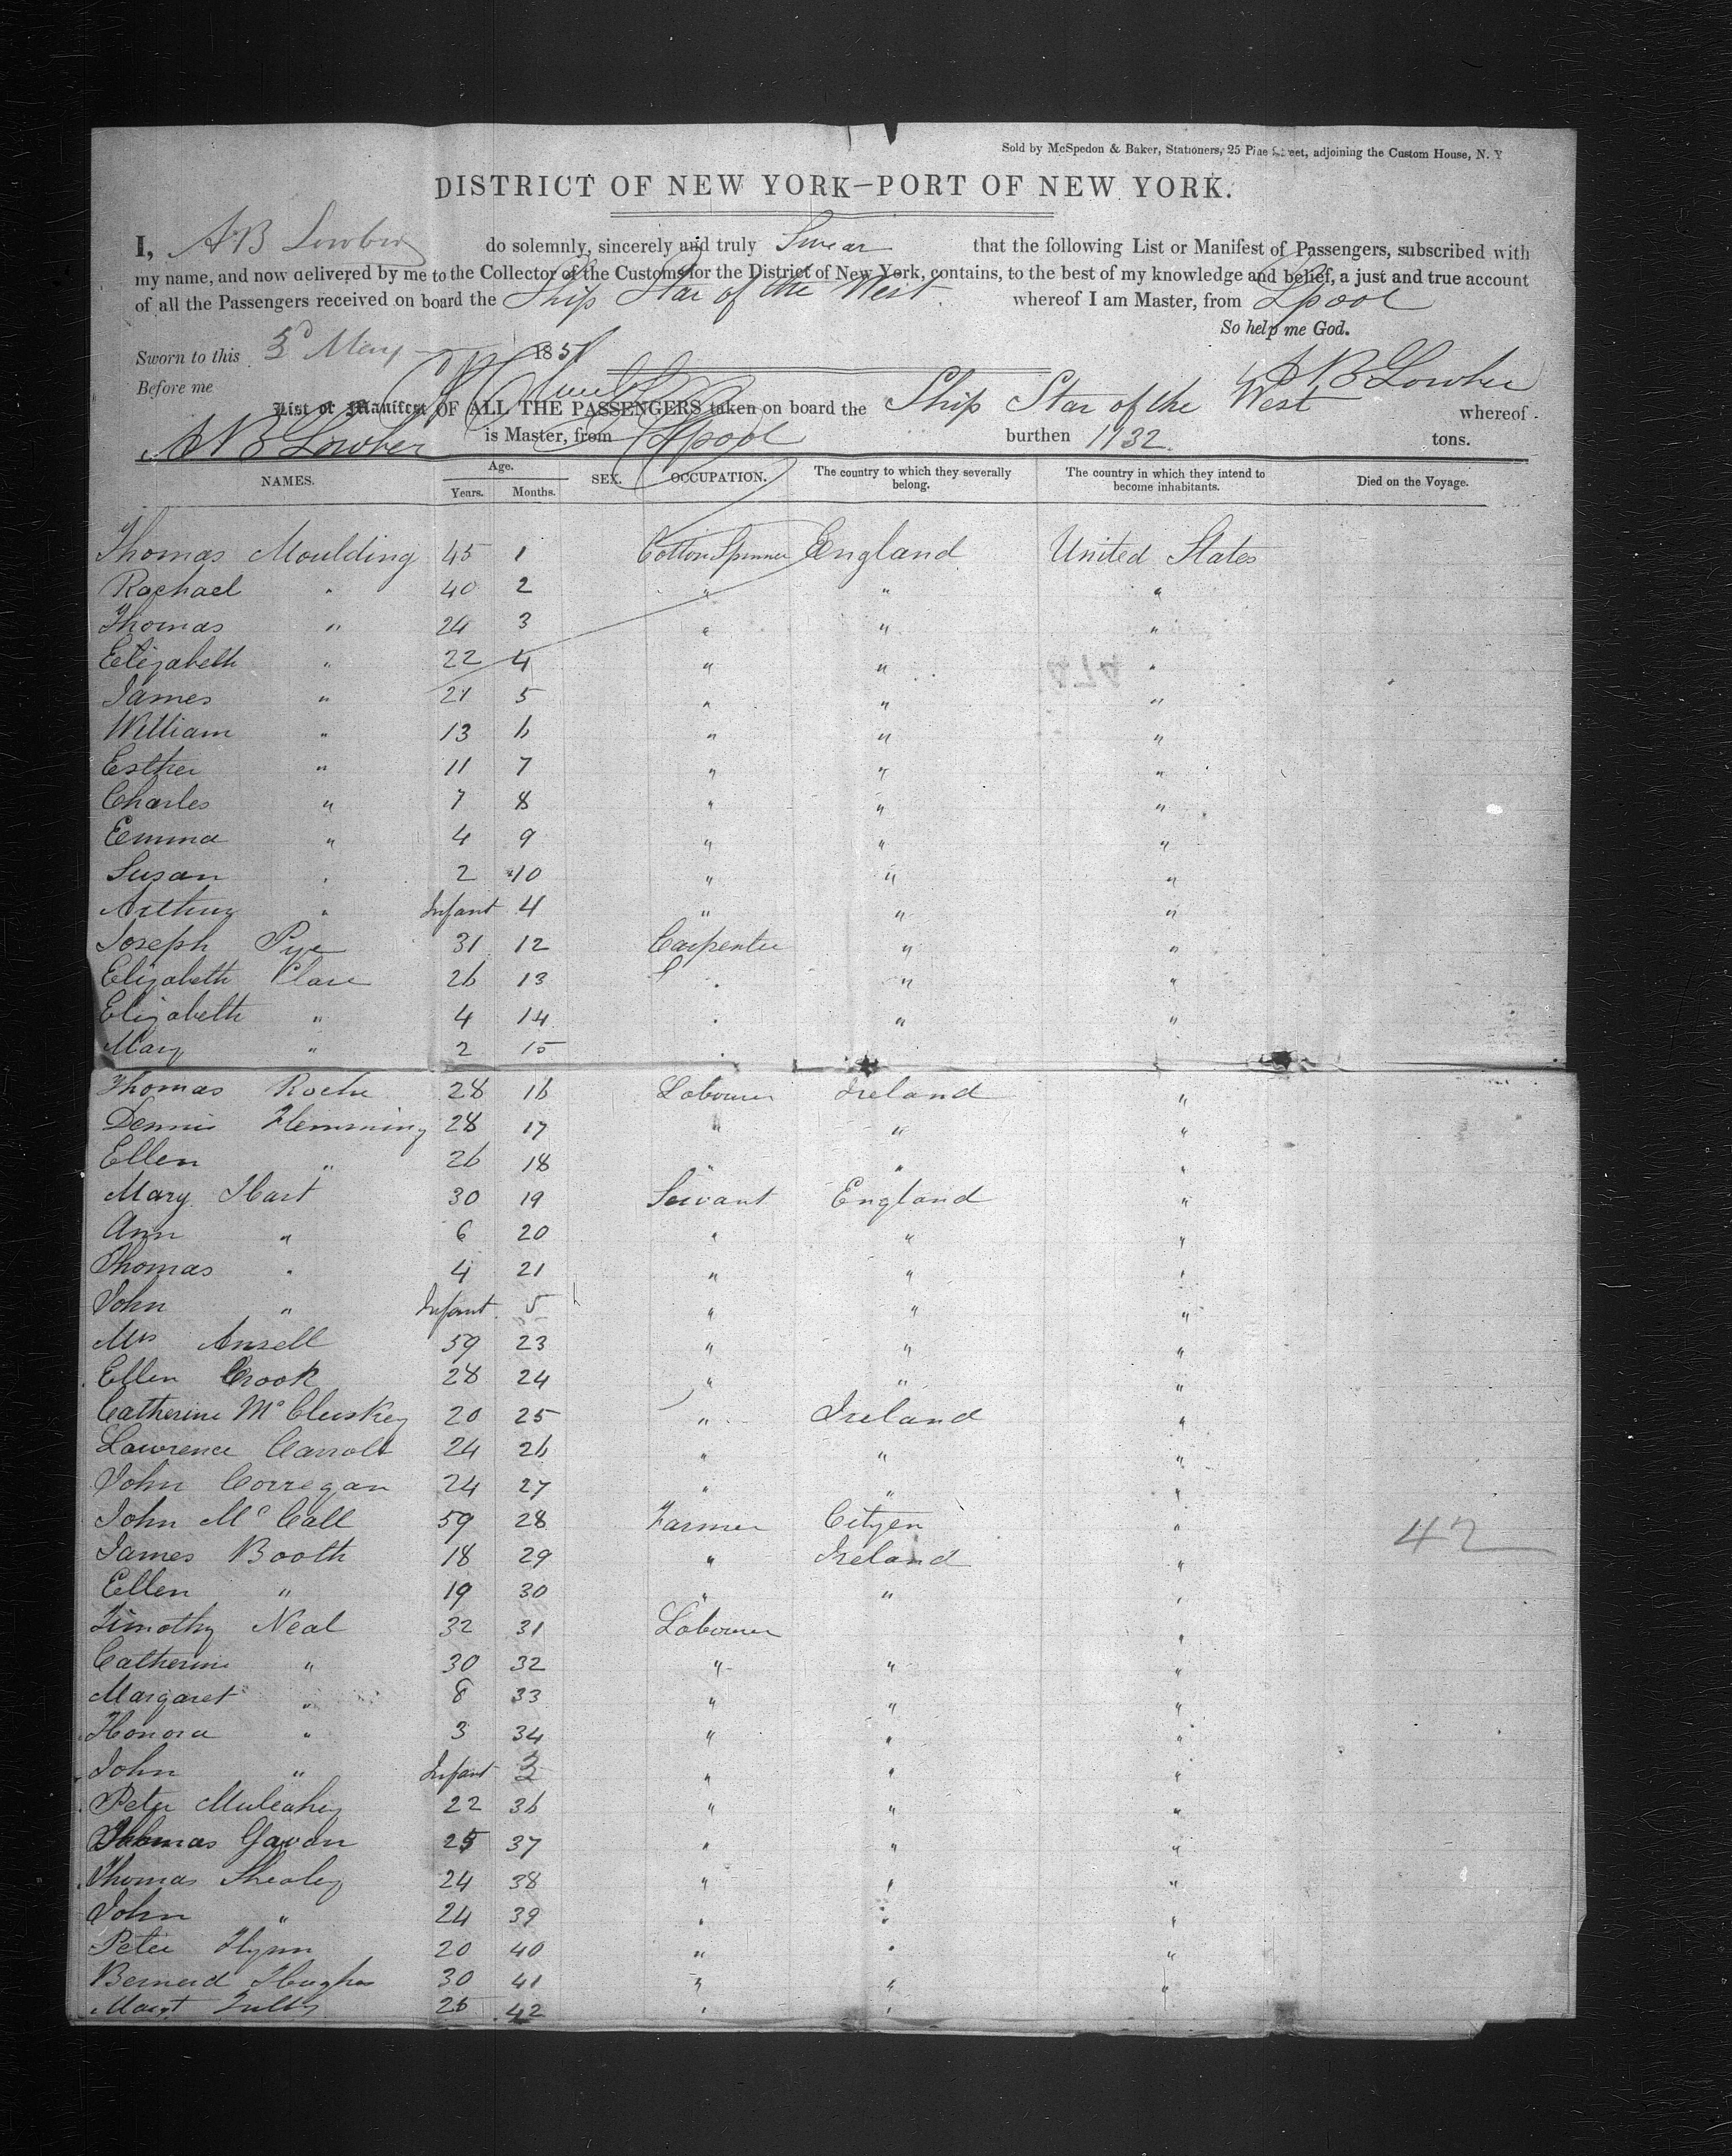 Sold by McSpedon & Baker, Stationers, 25 Pine Street, adjoining the Custom House, N. Y
DISTRICT OF NEW YORK—PORT OF NEW YORK.
I, A B Lowber do solemnly, sincerely and truly Swear that the following List or Manifest of Passengers, subscribed with
my name, and now delivered by me to the Collector of the Customs for the District of New York, contains, to the best of my knowledge and belief, a just and true account
of all the Passengers received on board the Ship Star of the West whereof I am Master, from Lpool
So help me God.
Sworn to this 3d May 1851
A B Lowber
Before me
List or Manifest OF ALL THE PASSENGERS taken on board the Ship Star of the West whereof
A B Lowber is Master, from Lpool burthen 1132 tons.
NAMES. Age. Years. Months. SEX. OCCUPATION. The country to which they severally belong. The country in which they intend to become inhabitants. Died on the Voyage.
Thomas Moulding 45 1 Cotton Spinner England United States
Rachael " 40 2 " " "
Thomas " 24 3 " " "
Elizabeth " 22 4 " " "
James " 21 5 " " "
William " 13 6 " " "
Esther " 11 7 " " "
Charles " 7 8 " " "
Emma " 4 9 " " "
Susan " 2 10 " " "
Arthur " Infant 4 " " "
Joseph Pye 31 12 Carpenter " "
Elizabeth Clare 26 13 " " "
Elizabeth " 4 14 " " "
Mary " 2 15 "
Thomas Roche 28 16 Labourer Ireland "
Dennis Flemming 28 17 " " "
Ellen " 26 18 " " "
Mary Hart 30 19 Servant England "
Ann " 6 20 " " "
Thomas " 4 21 " " "
John " Infant 5 " " "
Mrs Ansell 59 23 " " "
Ellen Crook 28 24 " " "
Catherine McCluskey 20 25 " Ireland "
Lawrence Carroll 24 26 " " "
John Corregan 24 27 " " "
John McCall 59 28 Farmer Cityen " 42
James Booth 18 29 " Ireland "
Ellen " 19 30 " " "
Timothy Neal 32 31 Labourer "
Catherine " 30 32 " " "
Margaret " 8 33 " " "
Honora " 3 34 " " "
John " Infant 3 " " "
Peter Mulcahey 22 36 " " "
Thomas Gavan 25 37 " " "
Thomas Shealey 24 38 " " "
John " 24 39 " " "
Peter Flynn 20 40 " " "
Bernerd Hughes 30 41 " " "
Margt 25 42 " "